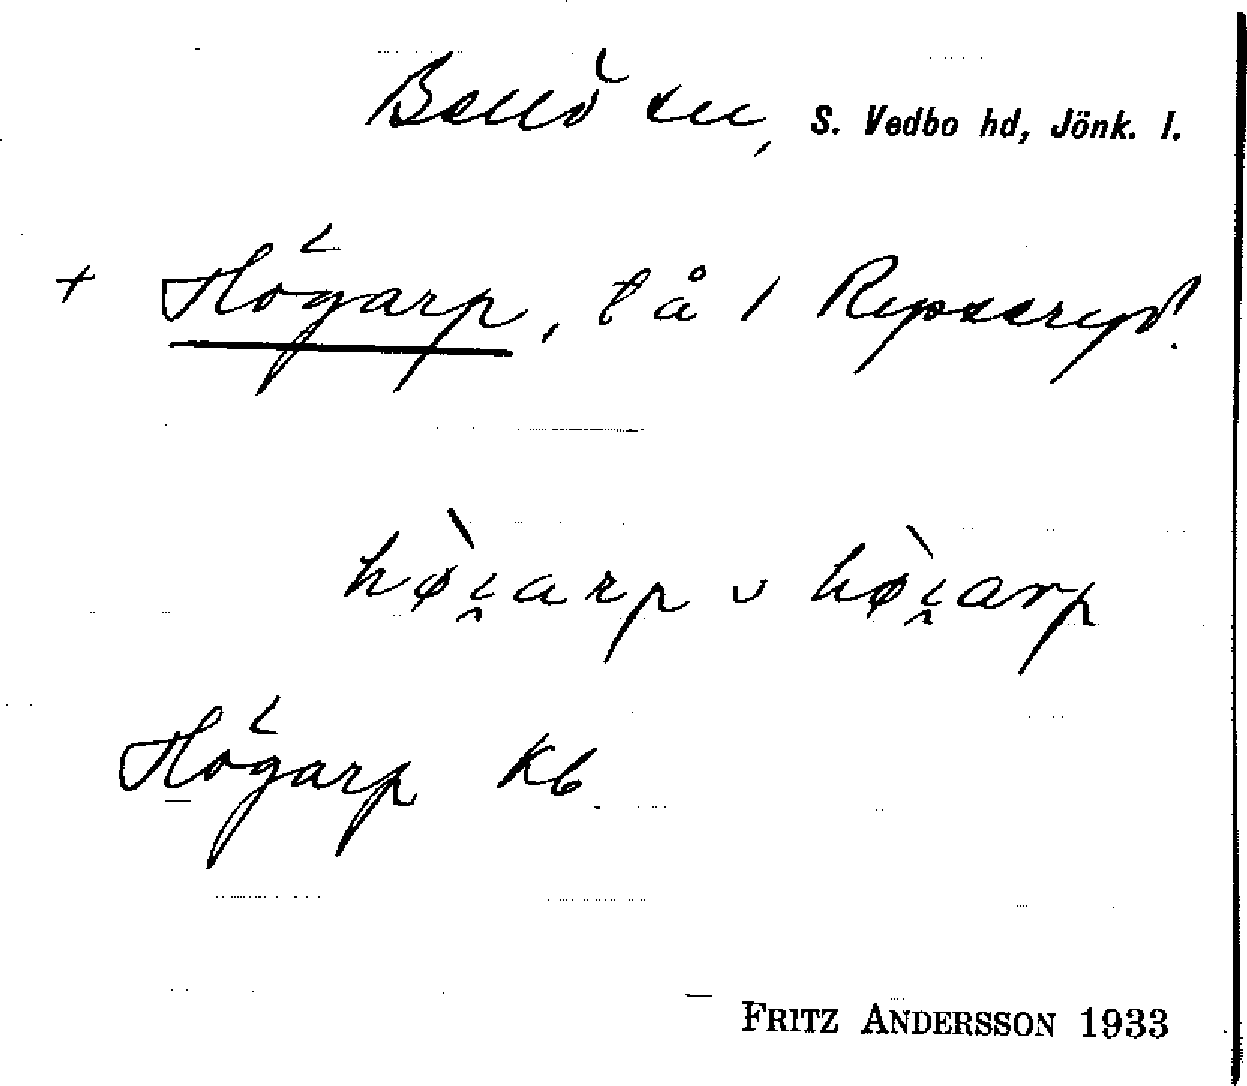 Bellö sn, S. Vedbo hd, Jönk. l.
+ Högarp, t å / Repperyd.
hø̀i̯arp v hø̀i̯arp
Högarp Kb
FRITZ ANDERSSON 1933